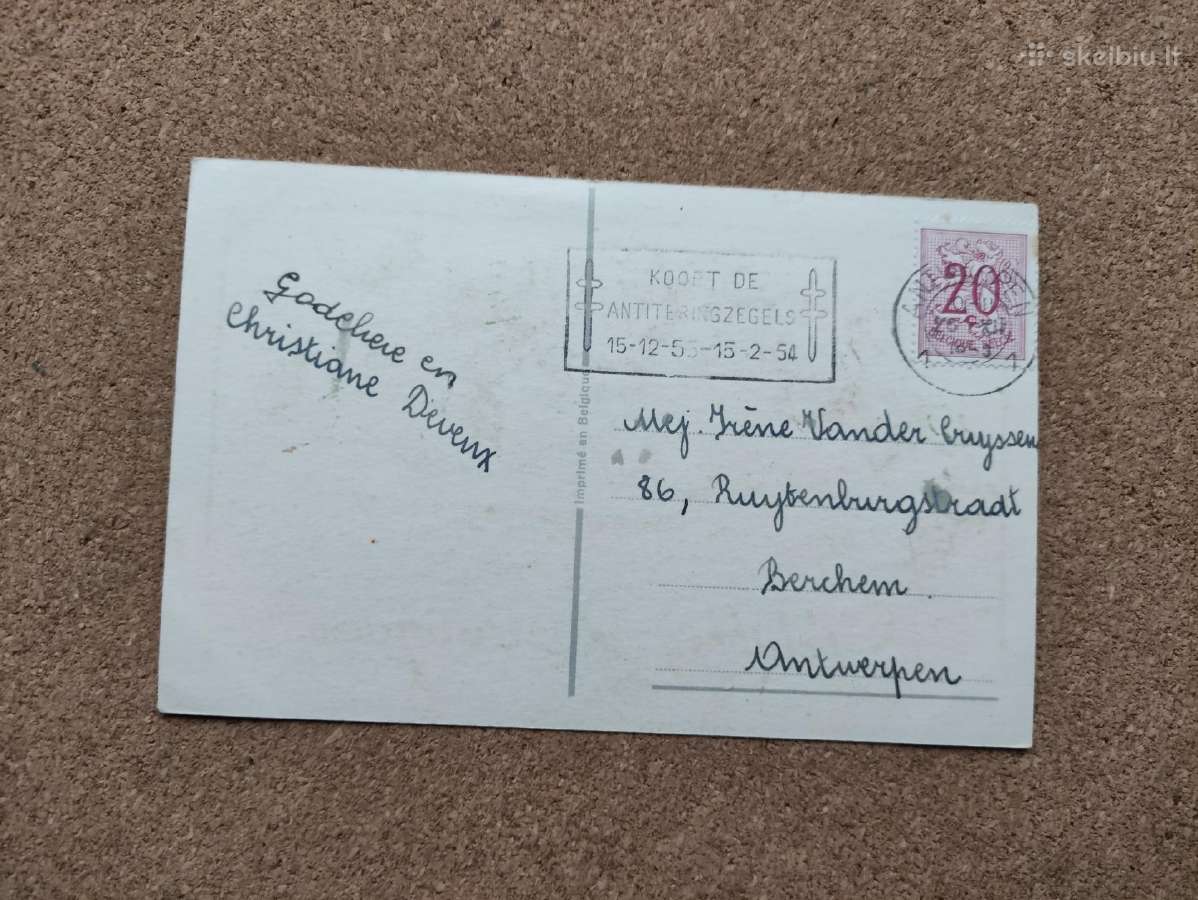 skelbiu.lt
Godelieve en
Christiane Deveux
KOOPT DE
ANTITERINGZEGELS
15-12-53-15-2-54
20
BELGIQUE BELGIE
Imprimé en Belgique
Mej. Irène Vander Cruyssen
86, Ruytenburgstraat
Berchem.
Antwerpen